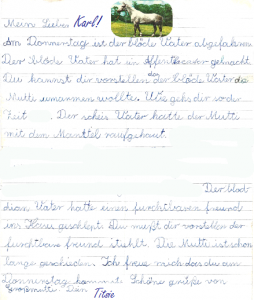 Mein Lieber Karl!
Am Donnerstag ist der blöde Vater abgefahren.
Der blöde Vater hat ein Affentheater gemacht
Du kannst dir vorstellen das der blöde Vater die
Mutti umarmen wollte. Wie gehs dir vorder
Zeit. Der scheis Vater hatte der Mutti
mit den Mantel raufgehaut.
Der blöd
dian Vater hatte einen furchtbaren freund
ins Haus geschlept. Du mußt dir vorstellen der
furchtbare freund stiehlt. Die Mutti ist schon
lange geschieden. Ich freue mich das du am
Donnerstag kommst. Schöne grüße von
Großmutti. Dein